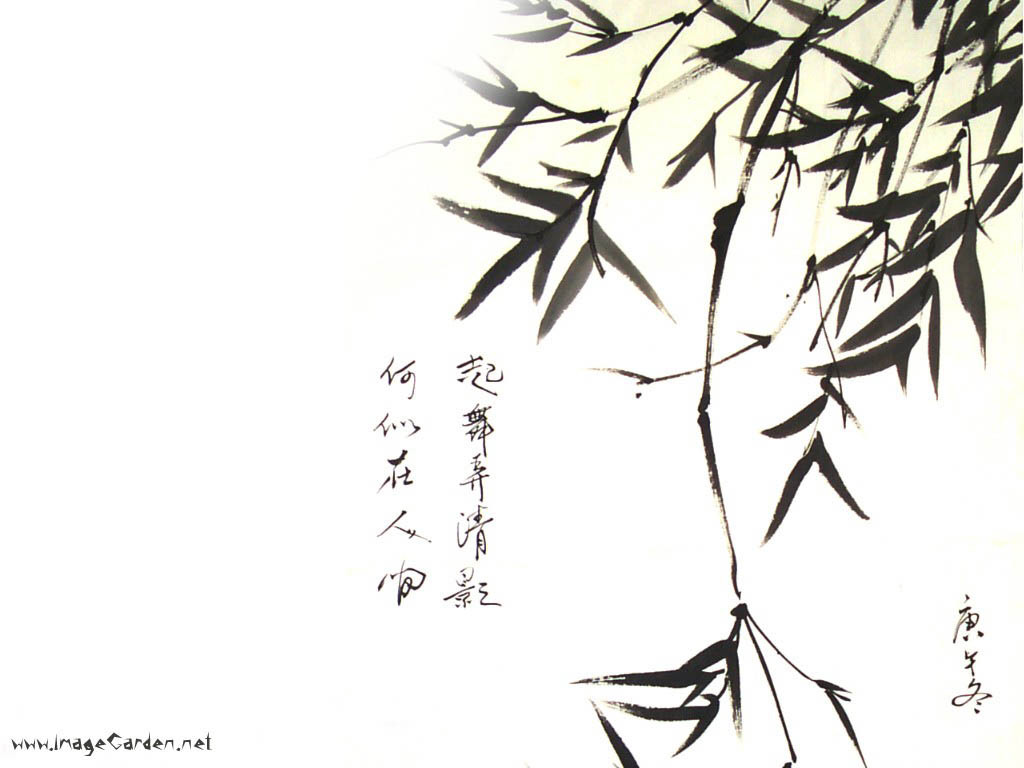 起舞弄清影
何似在人间
庚午冬
www.ImageGarden.net